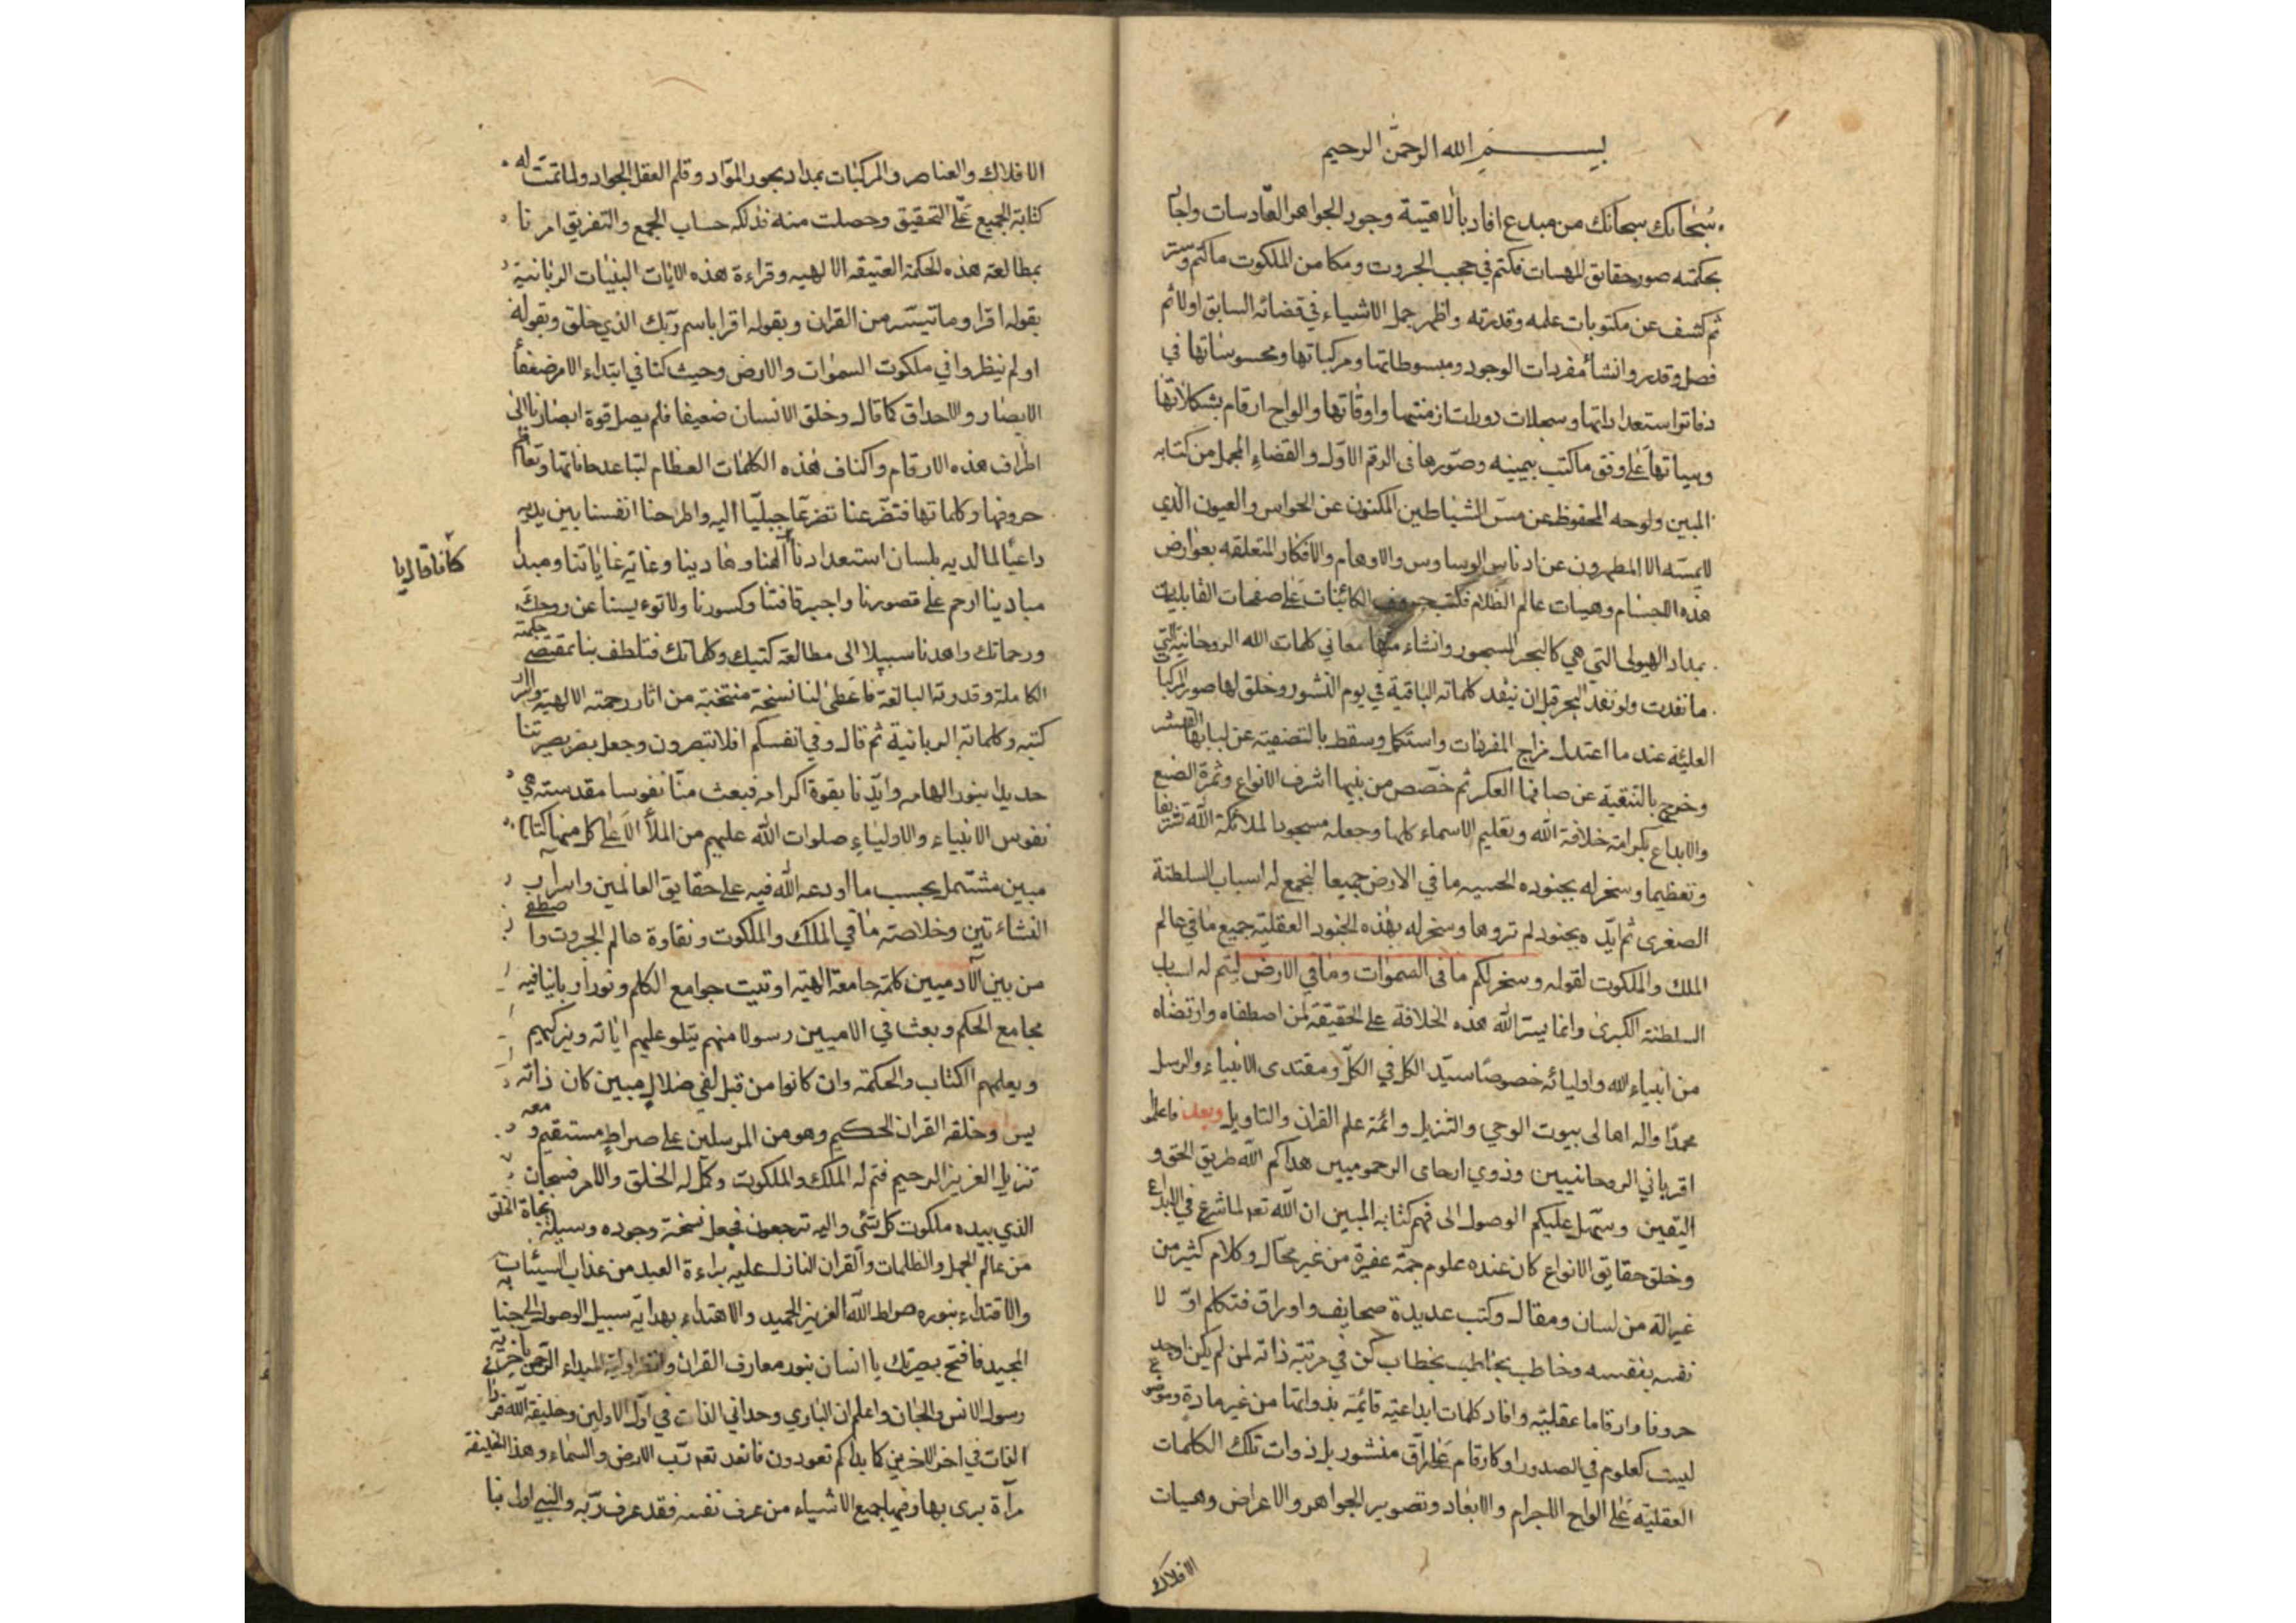 بسم الله الرحمن الرحيم
سبحانك سبحانك من مبدع افاد بالاهتية وجود الجواهر القادسات واجاد
بحكمته صور حقايق المهسات فكتم في حجب الجبروت ومكامن الملكوت ما كتم وستر
ثم كشف عن مكتوبات علمه وقدرته واظهر جمل الاشياء في قضائه السابق اولا ثم
فصل وقدر وانشأ مفردات الوجود ومبسوطاتها ومركباتها ومحسوساتها في
دفاتر استعداداتها وسجلات دورات ازمنتها واوقاتها والواح ارقام بشكلاتها
وهياتها على وفق ما كتب بيمينه وصورها في الرقم الاول والقضاء المجمل من كتابه
المبين ولوحه المحفوظ عن مس الشياطين المكنون عن الحواس والعيون الذي
لا يمسه الا المطهرون عن ادناس الوساوس والاوهام والافكار المتعلقه بعوارض
هذه الاجسام وهيات عالم الظلام فكتب حروف الكائنات على صفحات القابليات
بمداد الهيولى التي هي كالبحر المسجور وانشاء منها معاني كلمات الله الروحانية التي
ما نفدت ولو نفد البحر قبل ان ينفد كلماته الباقية في يوم النشور وخلق لها صور المركبات
العلية عند ما اعتدل مزاج المفردات واستكمل وسقط بالتصفية عن لبابها القشر
وخرج بالتنقية عن صافيها العكر ثم خصص من بينها اشرف الانواع وثمرة الصنع
والابداع بكرامة خلافة الله وتعليم الاسماء كلها وجعله مسجودا لملائكة الله تشريفا
وتعظيما وسخر له بجنوده الحسيه ما في الارض جميعا لتجمع له اسباب السلطنة
الصغرى ثم ايده بجنود لم تروها وسخر له بهذه الجنود العقلية جميع ما في عالم
الملك والملكوت لقوله وسخر لكم ما فى السموات وما في الارض ليتم له اسباب
السلطنة الكبرى وانما يسر الله هذه الخلافة على الحقيقة لمن اصطفاه وارتضاه
من انبياء الله واوليائه خصوصا سيد الكل في الكل ومقتدى الانبياء والرسل
محمدا واله اهالى بيوت الوحي والتنزيل وائمة علم القران والتاويل وبعد فاعلموا
اقرباني الروحانيين وذوي ارحامى الرحموميين هداكم الله طريق الحق و
اليقين وسهل عليكم الوصول الى فهم كتابه المبين ان الله تعه لما شرع في الابداع
وخلق حقايق الانواع كان عنده علوم جمة غفيرة من غير محال وكلام كثير من
غير الة من لسان ومقال وكتب عديدة صحايف واوراق فتكلم اولا
نفسه بنفسه وخاطب بخاطب بخطاب كن في مرتبة ذاته لمن لم يكن اوجد
حروفا وارقاما عقلية وافاد كلمات ابداعية قائمة بذواتها من غير مادة وموضوع
ليست كعلوم في الصدور او كارقام على رق منشور بل ذوات تلك الكلمات
العقلية على الواح الاجرام والابعاد وتصوير الجواهر والاعراض وهيات
الافلاك
الافلاك والعناصر والمركبات بمداد بجود المواد وقلم العقل الجواد ولما تمت له
كتابة الجميع على التحقيق وحصلت منه فذلكه حساب الجمع والتفريق امرنا
بمطالعة هذه الحكمة العتيقه الالهيه وقراءة هذه الايات البينات الربانية
بقوله اقراوا ما تيسر من القران وبقوله اقرا باسم ربك الذي خلق وبقوله
اولم ينظروا في ملكوت السموات والارض وحيث كنا في ابتداء الامر ضعفاء
الابصار والاحداق كما قال وخلق الانسان ضعيفا فلم يصل قوة ابصارنا الى
اطراف هذه الارقام واكناف هذه الكلمات العظام لتباعد حافاتها وتعاظم
حروفها وكلماتها فتضرعنا تضرعا جبليا اليه واطرحنا انفسنا بين يديه
داعيا لما لديه بلسان استعدادنا الهنا وهادينا وغاية غاياتنا ومبدأ
مبادينا ارحم على قصورنا واجبر فاقتنا وكسورنا ولا تؤيسنا عن روحك
ورحماتك واهدنا سبيلا الى مطالعة كتبك وكلماتك فتلطف بنا بمقتضى حكمته
الكاملة وقدرته البالغة فاعطى لنا نسخة منتخبة من اثار رحمته الالهية
كتبه وكلماته الربانية ثم قال وفي انفسكم افلا تبصرون وجعل بصر بصيرتنا
حديدا بنور الهامه وايدنا بقوة اكرامه فبعث منا نفوسا مقدسة هي
نفوس الانبياء والاولياء صلوات الله عليهم من الملأ الاعلى كل منها كتاب
مبين مشتمل بحسب ما اودعه الله فيه على حقايق العالمين واسرار
النشاءتين وخلاصة ما في الملك والملكوت ونقاوة عالم الجبروت واصطفى
من بين الآدميين كلمة جامعة الهية اوتيت جوامع الكلم ونورا ربانيا فيه
مجامع الحكم وبعث في الاميين رسولا منهم يتلو عليهم اياته ويزكيهم
ويعلمهم الكتاب والحكمة وان كانوا من قبل لفي ضلال مبين كان ذاته
يس وخلقه القران الحكيم وهو من المرسلين على صراط مستقيم ومعه
تنزيل العزيز الرحيم فتم له الملك والملكوت وكمل له الخلق والامر فسبحان
الذي بيده ملكوت كل شئ واليه ترجعون فجعل نسخة وجوده وسيلة نجاة الخلق
من عالم الجهل والظلمات والقران النازل عليه براءة العبد من عذاب السيئات
والاقتداء بنوره صراط الله العزيز الحميد والاهتداء بهدايته سبيل الوصول
المجيد فافتح بصرتك يا انسان بنور معارف القران وانظر اولية المبداء
رسول الانس والجان واعلم ان الباري وحداني الذات في اول الاولين وخليفة الله
الذات في اخر الاخرين كما بداكم تعودون فانه تعه رب الارض والسماء وهذا الخليفة
مرآة يرى بها وفيها جميع الاشياء من عرف نفسه فقد عرف ربه والنبي اولى